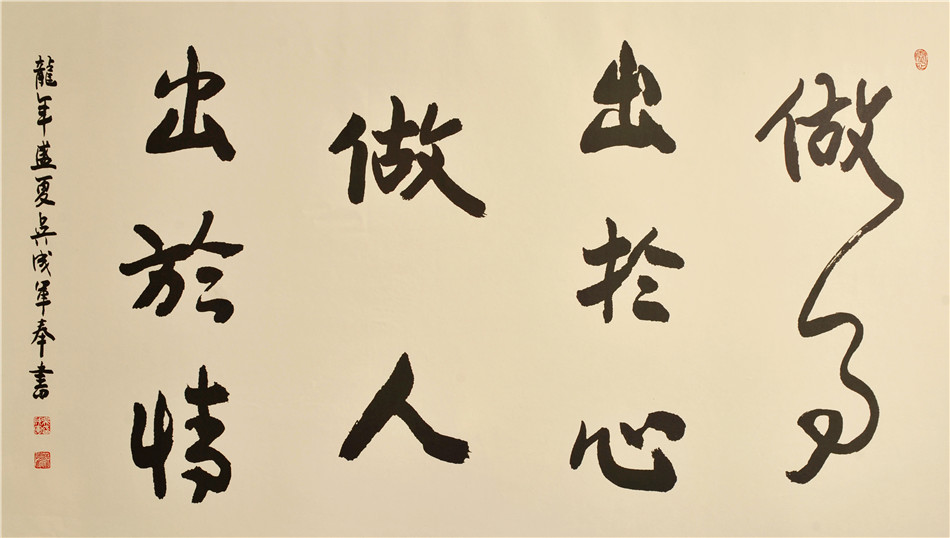 做事
出於心
做人
出於情
龍年盛夏吳成軍奉書